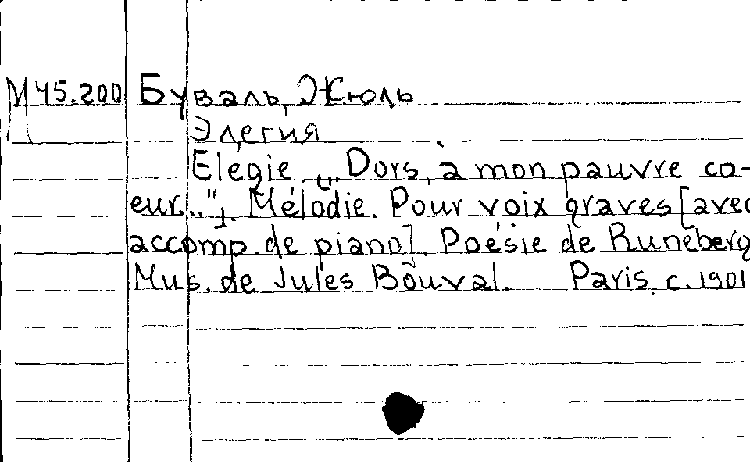 М 45.200 Буваль, Жюль
Элегия
Elegie „Dors, a mon pauvre co-
eur..."]. Mélodie. Pour voix graves [avec
accomp. de piano]. Poésie de Runeberg
Mus. de Jules Bouval. Paris, c. 1901